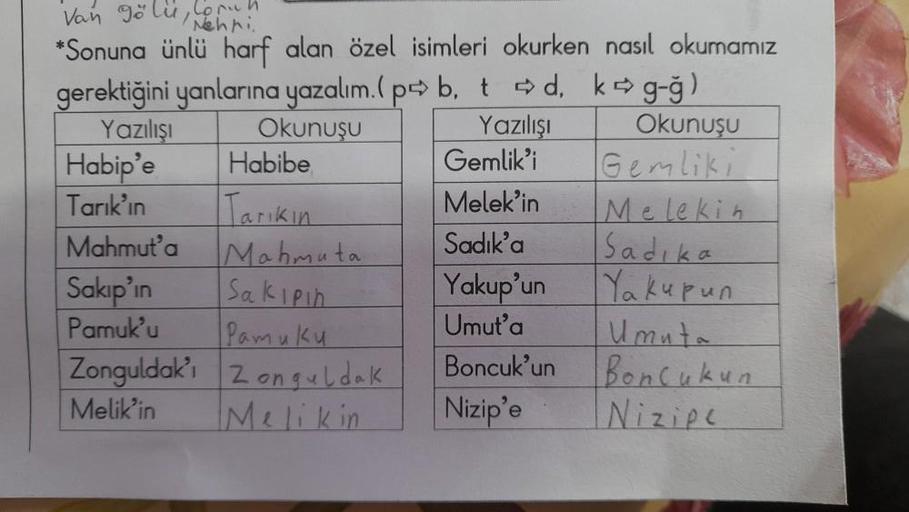 Van gölü, Çoruh
Nehri.
*Sonuna ünlü harf alan özel isimleri okurken nasıl okumamız
gerektiğini yanlarına yazalım.( p⇨ b, t ⇨ d, k⇨ g-ğ)
Yazılışı Okunuşu
Habip'e Habibe
Tarık'ın Tarıkın
Mahmut'a Mahmuta
Sakıp'ın Sakıpın
Pamuk'u Pamuku
Zonguldak'ı Zonguldak
Melik'in Melikin
Yazılışı Okunuşu
Gemlik'i Gemliki
Melek'in Melekin
Sadık'a Sadıka
Yakup'un Yakupun
Umut'a Umuta
Boncuk'un Boncukun
Nizip'e Nizipe